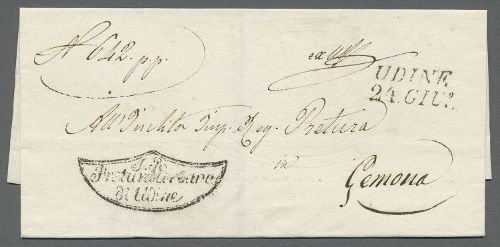 N 642. pp.
ex uff
UDINE
24. GIU.
All' Inclita Imp. Reg. Pretura
I. R.
Pretura Urbana
di Udine
in
Gemona